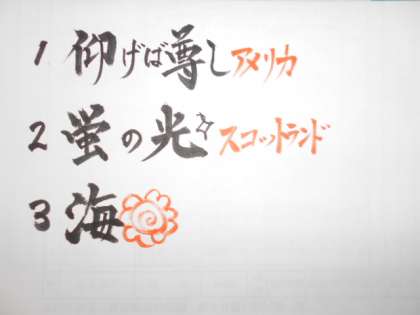 1 仰げば尊し アメリカ
2 蛍の光 スコットランド
3 海